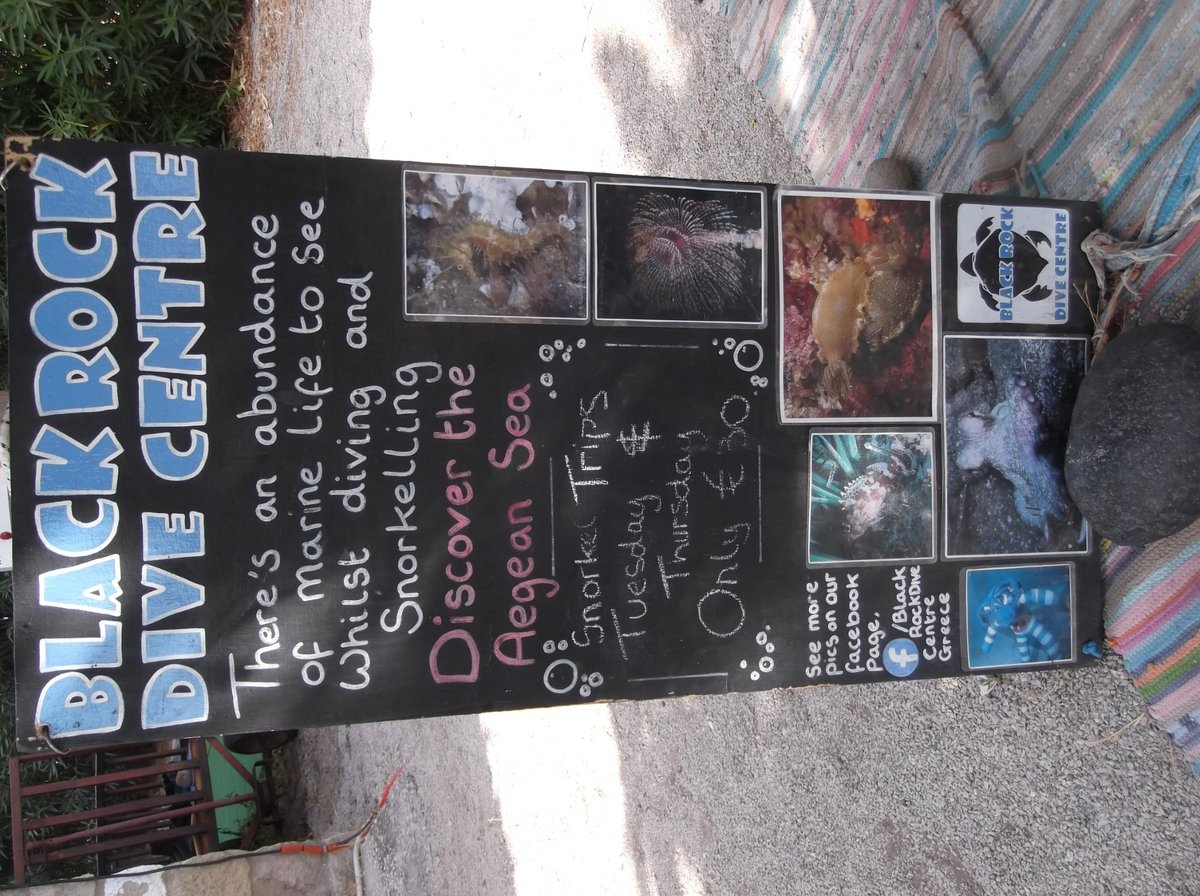 BLACK ROCK
DIVE CENTRE
There's an abundance
of marine life to see
whilst diving and
Snorkelling
Discover the
Aegean Sea
Snorkel Trips
Tuesday &
Thursday
Only € 30
See more
pics on our
facebook
Page.
f /Black
RockDive
Centre
Greece
BLACK ROCK
DIVE CENTRE